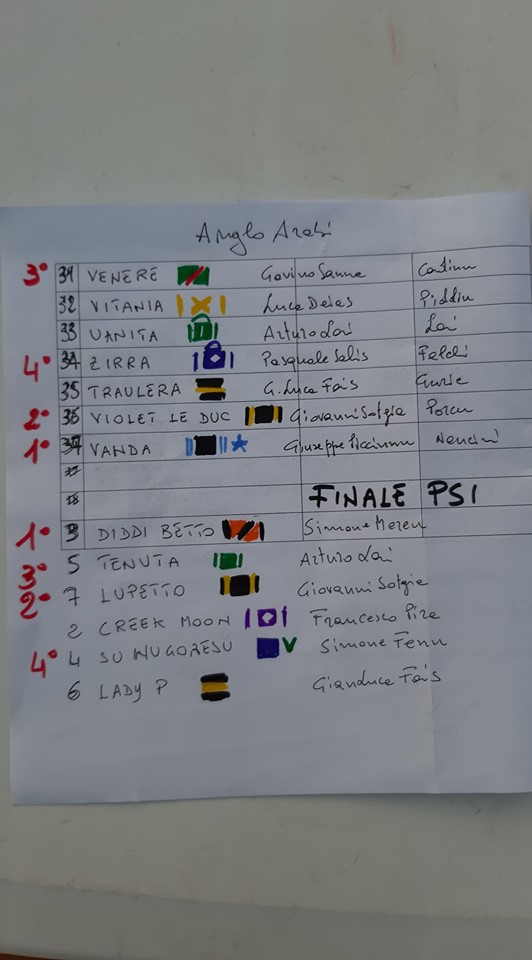 Anglo Arabi
3° 31 VENERE Gavino Sanna
32 VITANIA Luca Deias Piddiu
33 VANITA Arturo Lai Lai
4° 34 ZIRRA Pasquale Salis
35 TRAULERA G. Luca Fais
2° 36 VIOLET LE DUC Giovanni Solgia Porcu
1° 37 VANDA Giuseppe Piccinnu
17
18 FINALE PSI
1° 3 DIDDI BETTO Simone Mereu
3° 5 TENUTA Arturo Lai
2° 7 LUPETTO Giovanni Solgia
2 CREEK MOON Francesco Pira
4° 4 SU NUGORESU V Simone Fenu
6 LADY P Gianluca Fais